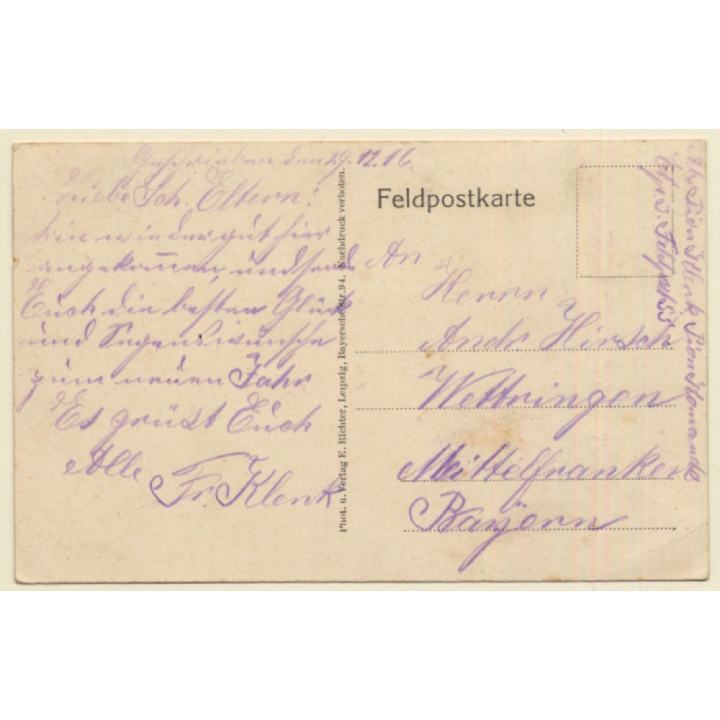 Geschrieben den 29.12.16.
Liebe Sch. Eltern!
bin wieder gut hier
angekommen, und sende
Euch die besten Glück
und Segenswünsche
zum neuen Jahr
Es grüst Euch
Alle Fr. Klenk
Phot. u. Verlag E. Richter, Leipzig, Bayersche Str. 94. Nachdruck verboten.
Feldpostkarte
An
Herrn
Andr Hirsch
Wettringen
Mittelfranken
Bayern
Pion Klenk Pion